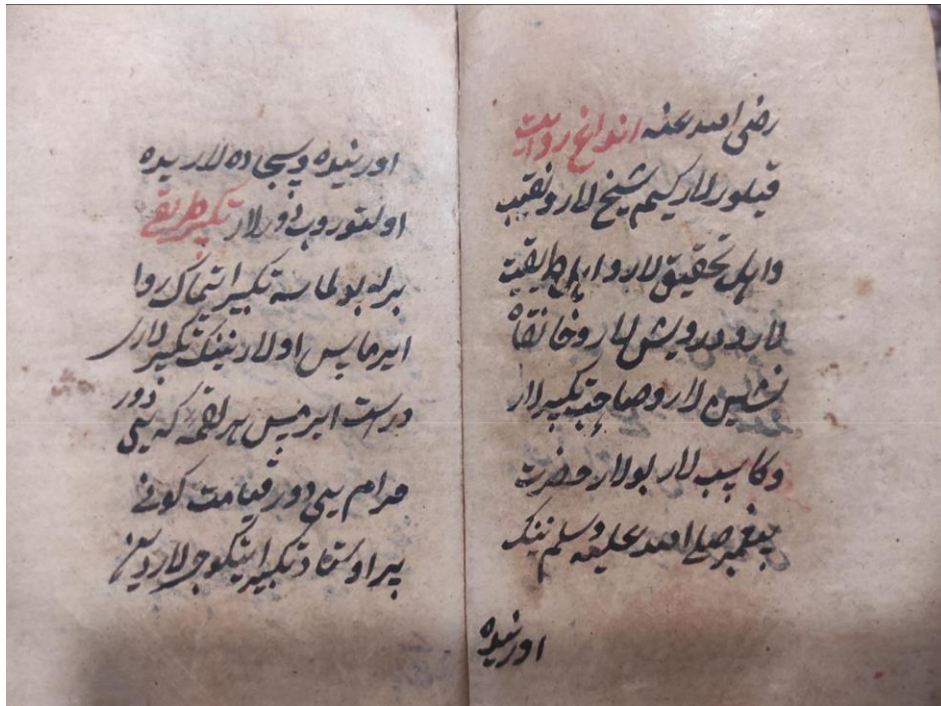 رضی الله عنه انداغ روایت
قیلورلار کیم شیخ لار و نقیب
و اهل تحقیق لار و اهل طریقت
لار و درویش لار و خانقاه
نشین لار و صاحب تکبیر لار
و کاسب لار بولار حضرت
پیغمبر صلی الله علیه وسلم نینک
اورنیده
اورنیده و سجاده لاریده
اولتوروبدورلار تکبیر طریقی
بیرله بولماسه تکبیر ایتماک روا
ایرماس اولارنینک تکبیر لاری
درست ایرمس هر لقمه که یدی دور
حرام یدی دور قیامت کونی
پیر اوستاد تکبیر ایتکوجی لاردین